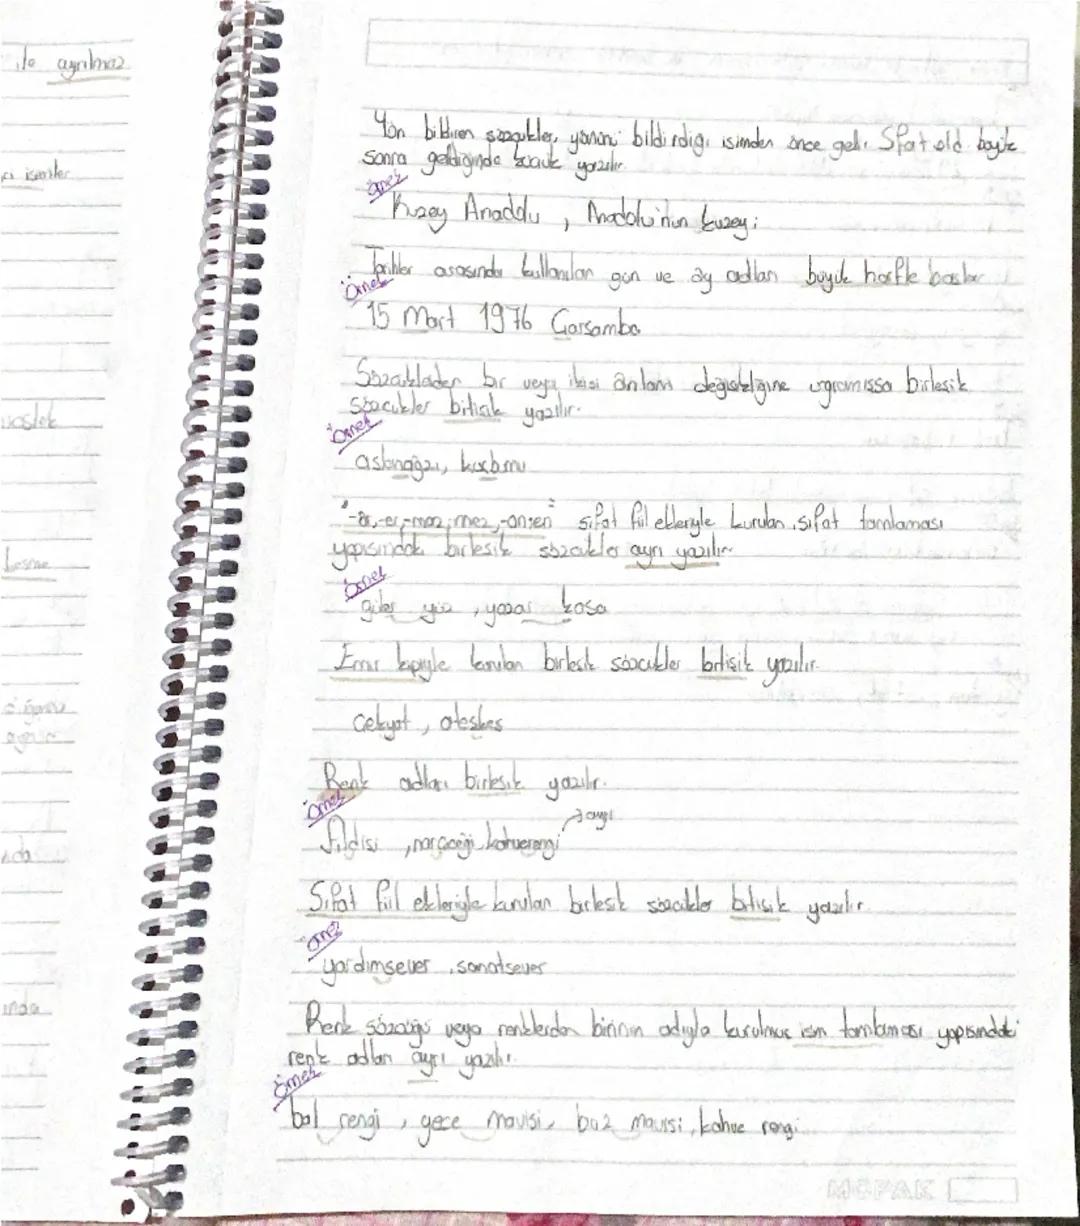 ile ayrılmaz
cı isimler
Yön bildiren sözcükler, yönünü bildirdiği isimden önce gelir. Sıfat old. büyük
sonra geldiğinde küçük yazılır.
örnek
Kuzey Anadolu, Anadolu'nun kuzeyi
Tarihler arasında kullanılan gün ve ay adları büyük harfle başlar
örnek
15 Mart 1976 Çarşamba
Sözcüklerden bir veya ikisi anlam değişikliğine uğramışsa birleşik
sözcükler bitişik yazılır.
örnek
aslanağzı, kuşburnu
"-ar,-er,-maz,-mez,-an,-en" sıfat fiil ekleriyle kurulan sıfat tamlaması
yapısındaki birleşik sözcükler ayrı yazılır
örnek
güler yüz, yazar kasa
Emir kipiyle kurulan birleşik sözcükler bitişik yazılır.
çekyat, ateşkes
Renk adları birleşik yazılır.
örnek
fildişi, narçiçeği, kahverengi → ayrı
Sıfat fiil ekleriyle kurulan birleşik sözcükler bitişik yazılır.
örnek
yardımsever, sanatsever
Renk sözcüğü veya renklerden birinin adıyla kurulmuş isim tamlaması yapısındaki
renk adları ayrı yazılır.
örnek
bal rengi, gece mavisi, buz mavisi, kahve rengi
MOPAK